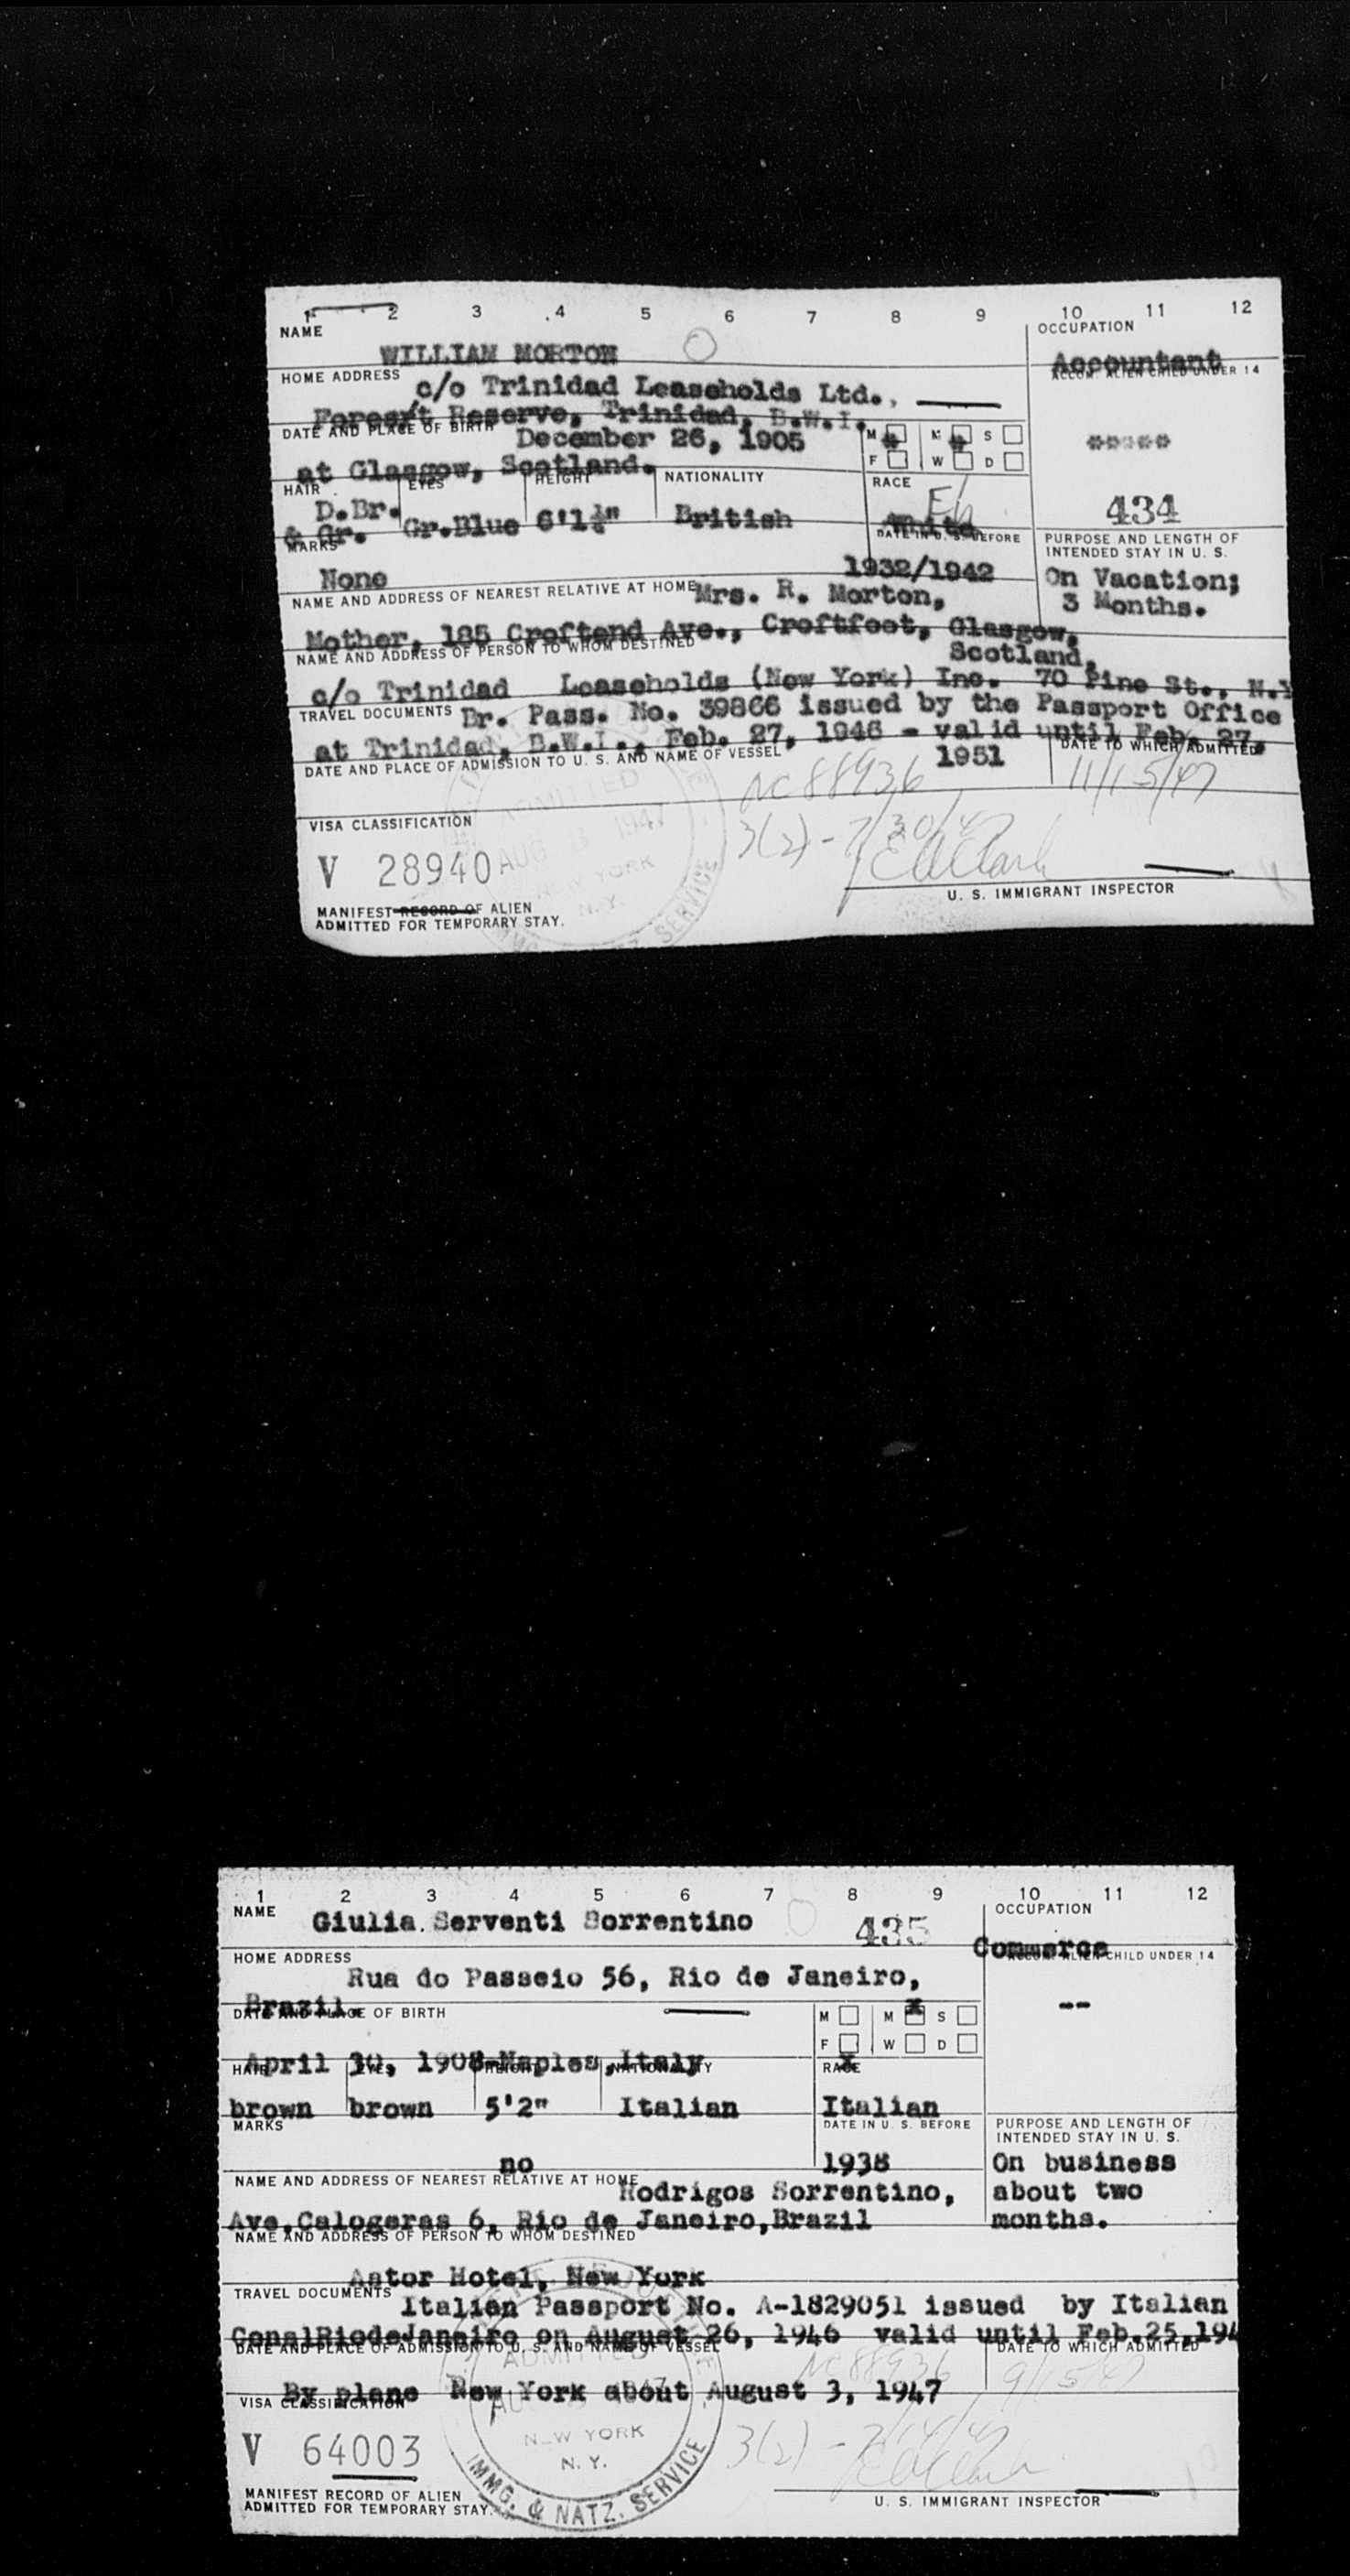 1 2 3 4 5 6 7 8 9 10 11 12
NAME OCCUPATION
WILLIAM MORTON Accountant
HOME ADDRESS ACCOM. ALIEN CHILD UNDER 14
c/o Trinidad Leaseholds Ltd.,
Forest Reserve, Trinidad, B.W.I.
DATE AND PLACE OF BIRTH December 26, 1905 M M S
at Glasgow, Scotland. F W D
HAIR EYES HEIGHT NATIONALITY RACE
D.Br. Eh
& Gr. Gr.Blue 6'1½" British White 434
MARKS DATE IN U. S. BEFORE PURPOSE AND LENGTH OF
INTENDED STAY IN U. S.
None 1932/1942 On Vacation;
NAME AND ADDRESS OF NEAREST RELATIVE AT HOME Mrs. R. Morton, 3 Months.
Mother, 185 Croftend Ave., Croftfoot, Glasgow,
NAME AND ADDRESS OF PERSON TO WHOM DESTINED Scotland.
c/o Trinidad Leaseholds (New York) Inc. 70 Pine St., N.Y
TRAVEL DOCUMENTS Br. Pass. No. 39866 issued by the Passport Office
at Trinidad, B.W.I., Feb. 27, 1946 - valid until Feb. 27,
DATE AND PLACE OF ADMISSION TO U. S. AND NAME OF VESSEL 1951 DATE TO WHICH ADMITTED
NC 88936 11/15/47
VISA CLASSIFICATION ADMITTED
3(2) - 7/30/47
V 28940 AUG 3 1947 NEW YORK N.Y. SERVICE
U. S. IMMIGRANT INSPECTOR
MANIFEST RECORD OF ALIEN
ADMITTED FOR TEMPORARY STAY.
1 2 3 4 5 6 7 8 9 10 11 12
NAME OCCUPATION
Giulia Serventi Sorrentino 435
HOME ADDRESS Commerce ACCOM. ALIEN CHILD UNDER 14
Rua do Passeio 56, Rio de Janeiro,
Brazil. --
DATE AND PLACE OF BIRTH M M x S
F x W D
April 30, 1908-Naples, Italy
HAIR EYES HEIGHT NATIONALITY RACE
brown brown 5'2" Italian Italian
MARKS DATE IN U. S. BEFORE PURPOSE AND LENGTH OF
INTENDED STAY IN U. S.
no 1938 On business
NAME AND ADDRESS OF NEAREST RELATIVE AT HOME Rodrigos Sorrentino, about two
Ave.Calogeras 6, Rio de Janeiro,Brazil months.
NAME AND ADDRESS OF PERSON TO WHOM DESTINED
Astor Hotel, New York
TRAVEL DOCUMENTS Italian Passport No. A-1829051 issued by Italian
ConalRiodeJaneiro on August 26, 1946 valid until Feb.25,194
DATE AND PLACE OF ADMISSION TO U. S. AND NAME OF VESSEL DATE TO WHICH ADMITTED
ADMITTED NC 88936 9/15/47
By plane New York about August 3, 1947
VISA CLASSIFICATION
V 64003 NEW YORK N. Y. 3(2) - 7/14/47
IMMG. & NATZ. SERVICE
MANIFEST RECORD OF ALIEN
ADMITTED FOR TEMPORARY STAY. U. S. IMMIGRANT INSPECTOR